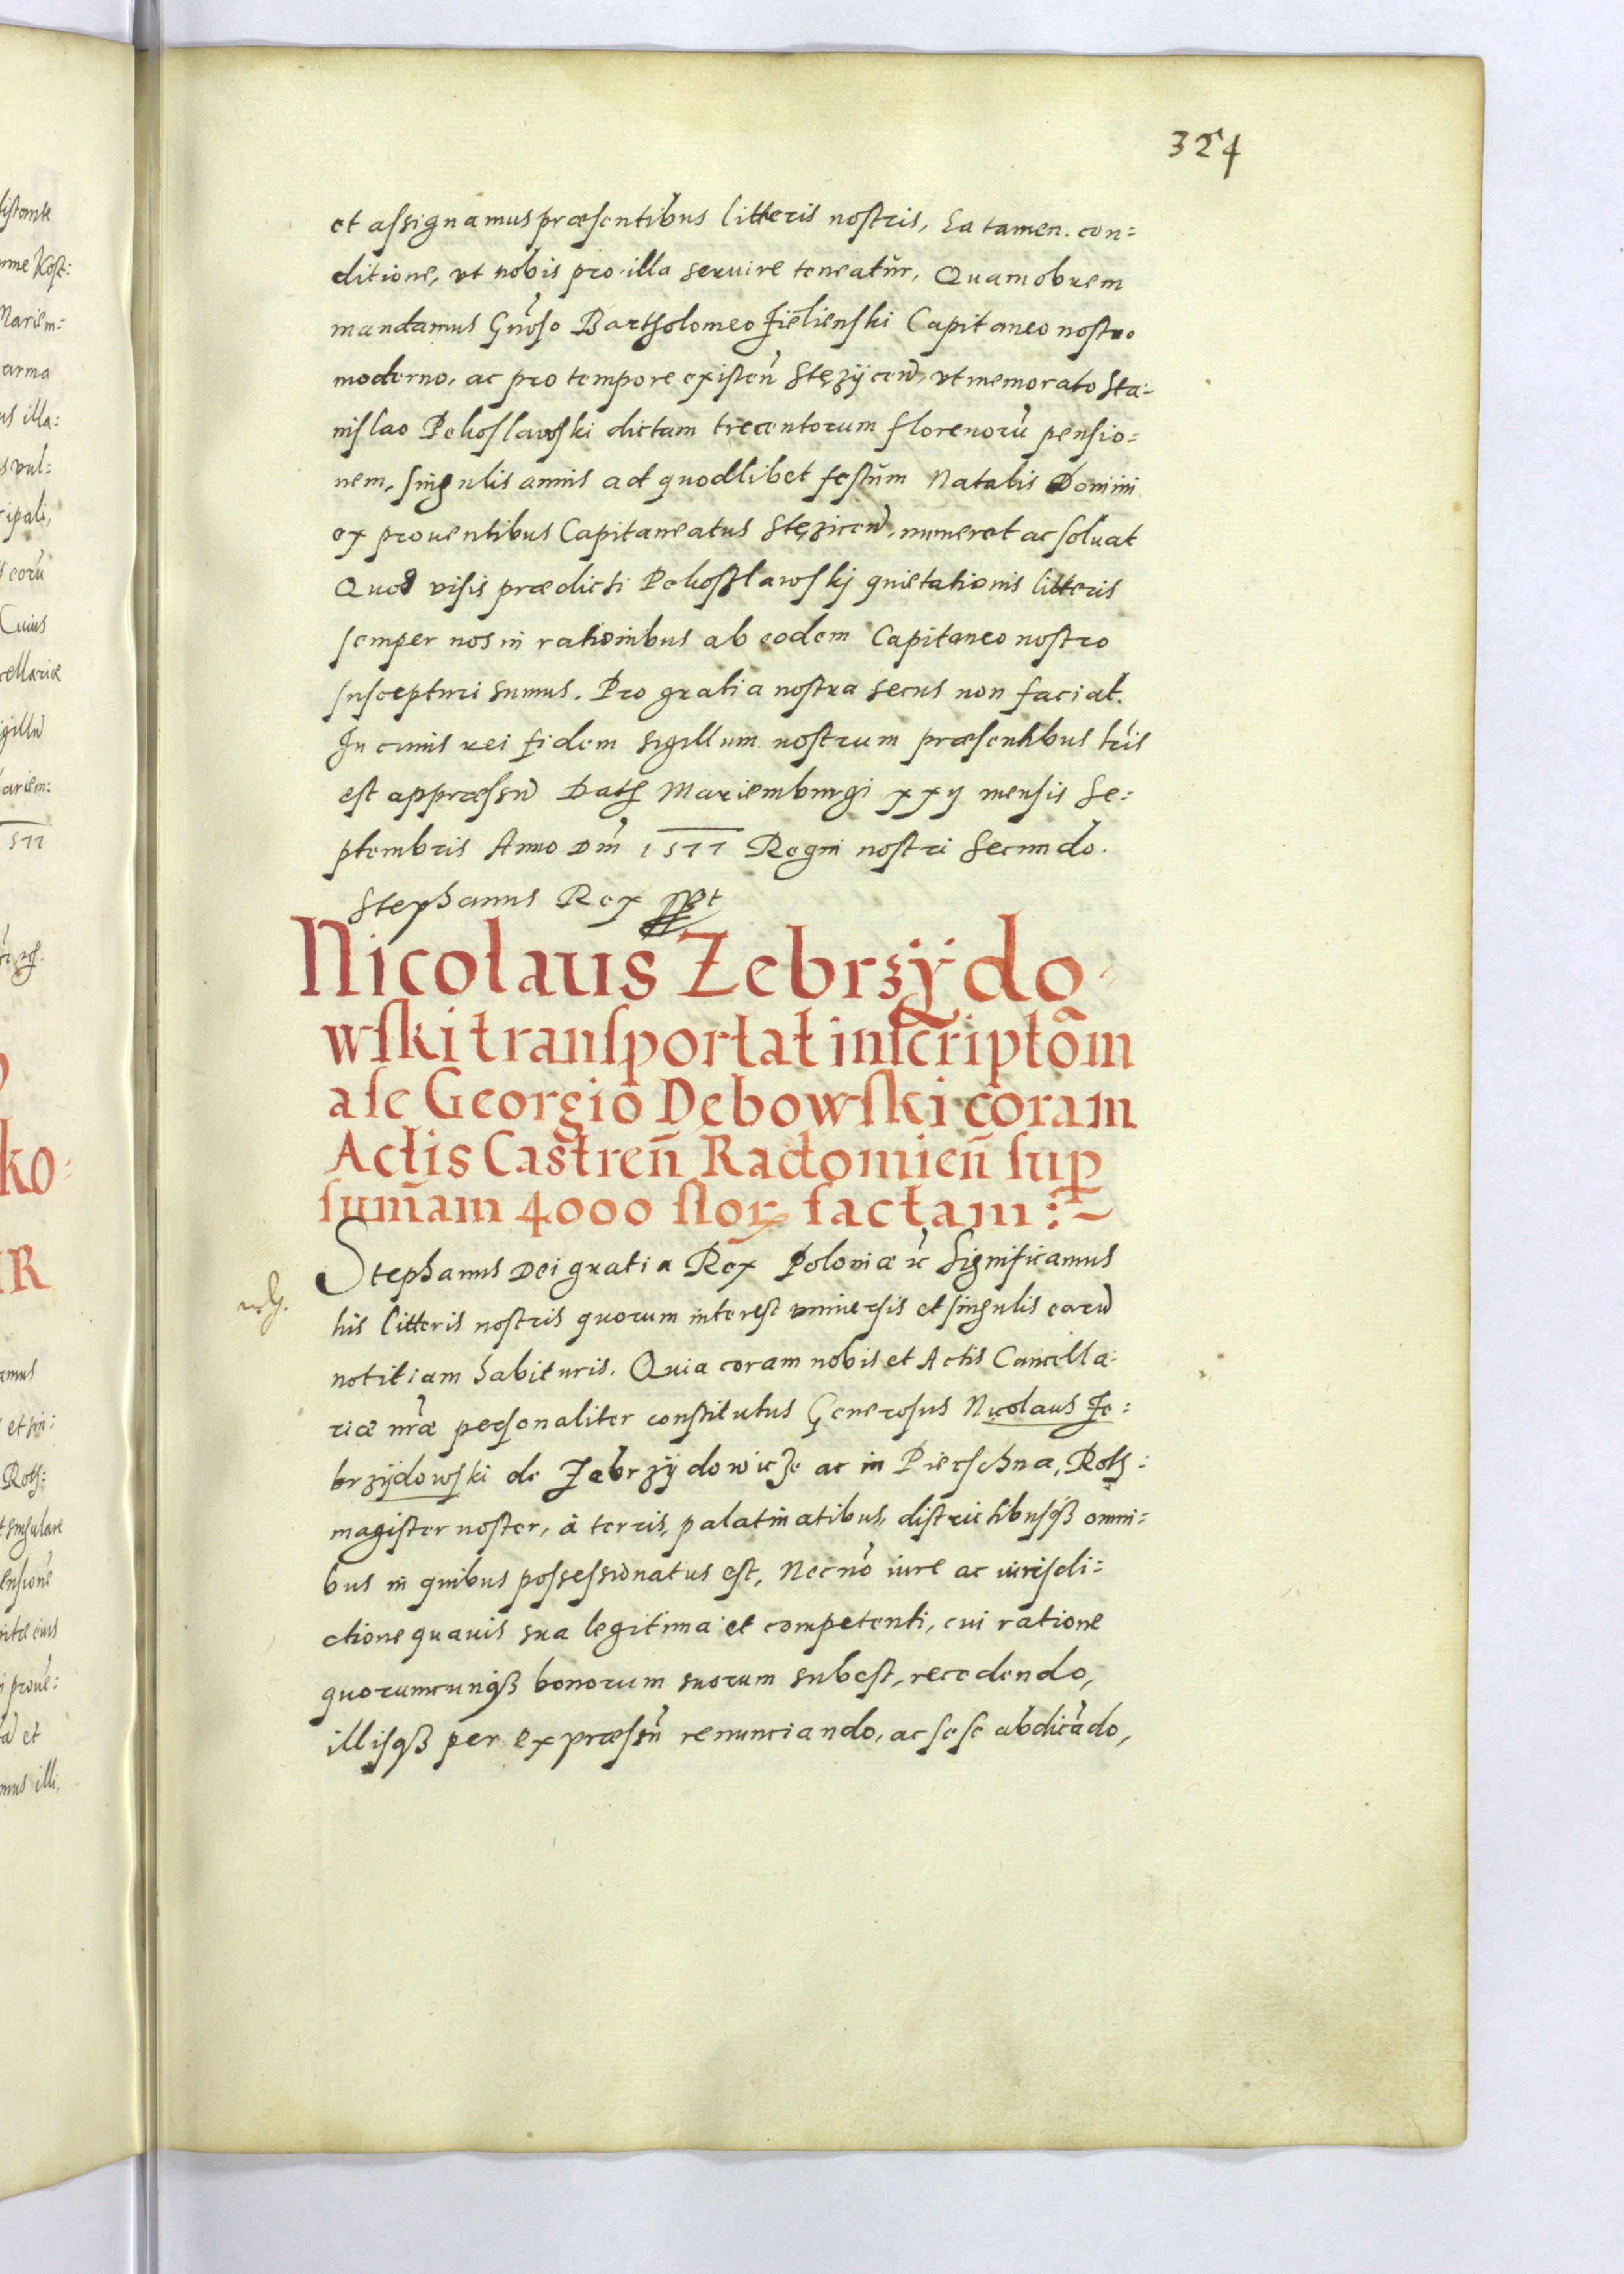 324
et assignamus præsentibus litteris nostris, Ea tamen. con=
ditione, vt nobis pro illa seruire teneatur, Quamobrem
mandamus Gn̄oso Bartholomeo Zielienski Capitaneo nostro
moderno, ac pro tempore existen̄ Stężÿcen̄, vt memorato Sta=
nislao Pekoslawski dictam trecentorum florenorū pensio=
nem, singulis annis ad quodlibet festum Natalis Domini
ex prouentibus Capitaneatus Stężicen̄, numeret ac soluat
Quod visis prædicti Pekoszlawskj quietationis litteris
semper nos in rationibus ab eodem Capitaneo nostro
suscepturi sumus. Pro gratia nostra secus non faciat.
In cuius rei fidem sigillum nostrum præsentibus lr̄is
est appræssū Datꝭ Mariemburgi xxij mensis Se=
ptembris Anno Dn̄i 1577 Regni nostri Secundo.
Stephanus Rex sspt
Nicolaus Zebrzÿdo=
wski transportat inscriptōm
a se Georgio Dębowski coram
Actis Castren̄ Radomien̄ sup
sum̄am 4000 flor factam :~
Stephanus Dei gratia Rex Poloniæ ꝛc Significamus
his litteris nostris quorum interest vniuersis et singulis earū
notitiam habituris. Quia coram nobis et Actis Cancella=
riæ nr̄æ personaliter constitutus Generosus Nicolaus Ze=
brzÿdowski de Zebrzÿdowicze ac in Pierschna, Roth=
magister noster, à terris, palatinatibus, districtibusqꝫ omni=
bus in quibus possessionatus est, Necnō iure ac iurisdi=
ctione quauis sua legitima et competenti, cui ratione
quorumcunqꝫ bonorum suorum subest, recedendo,
illisqꝫ per expræssū renunciando, ac sese abdicādo,